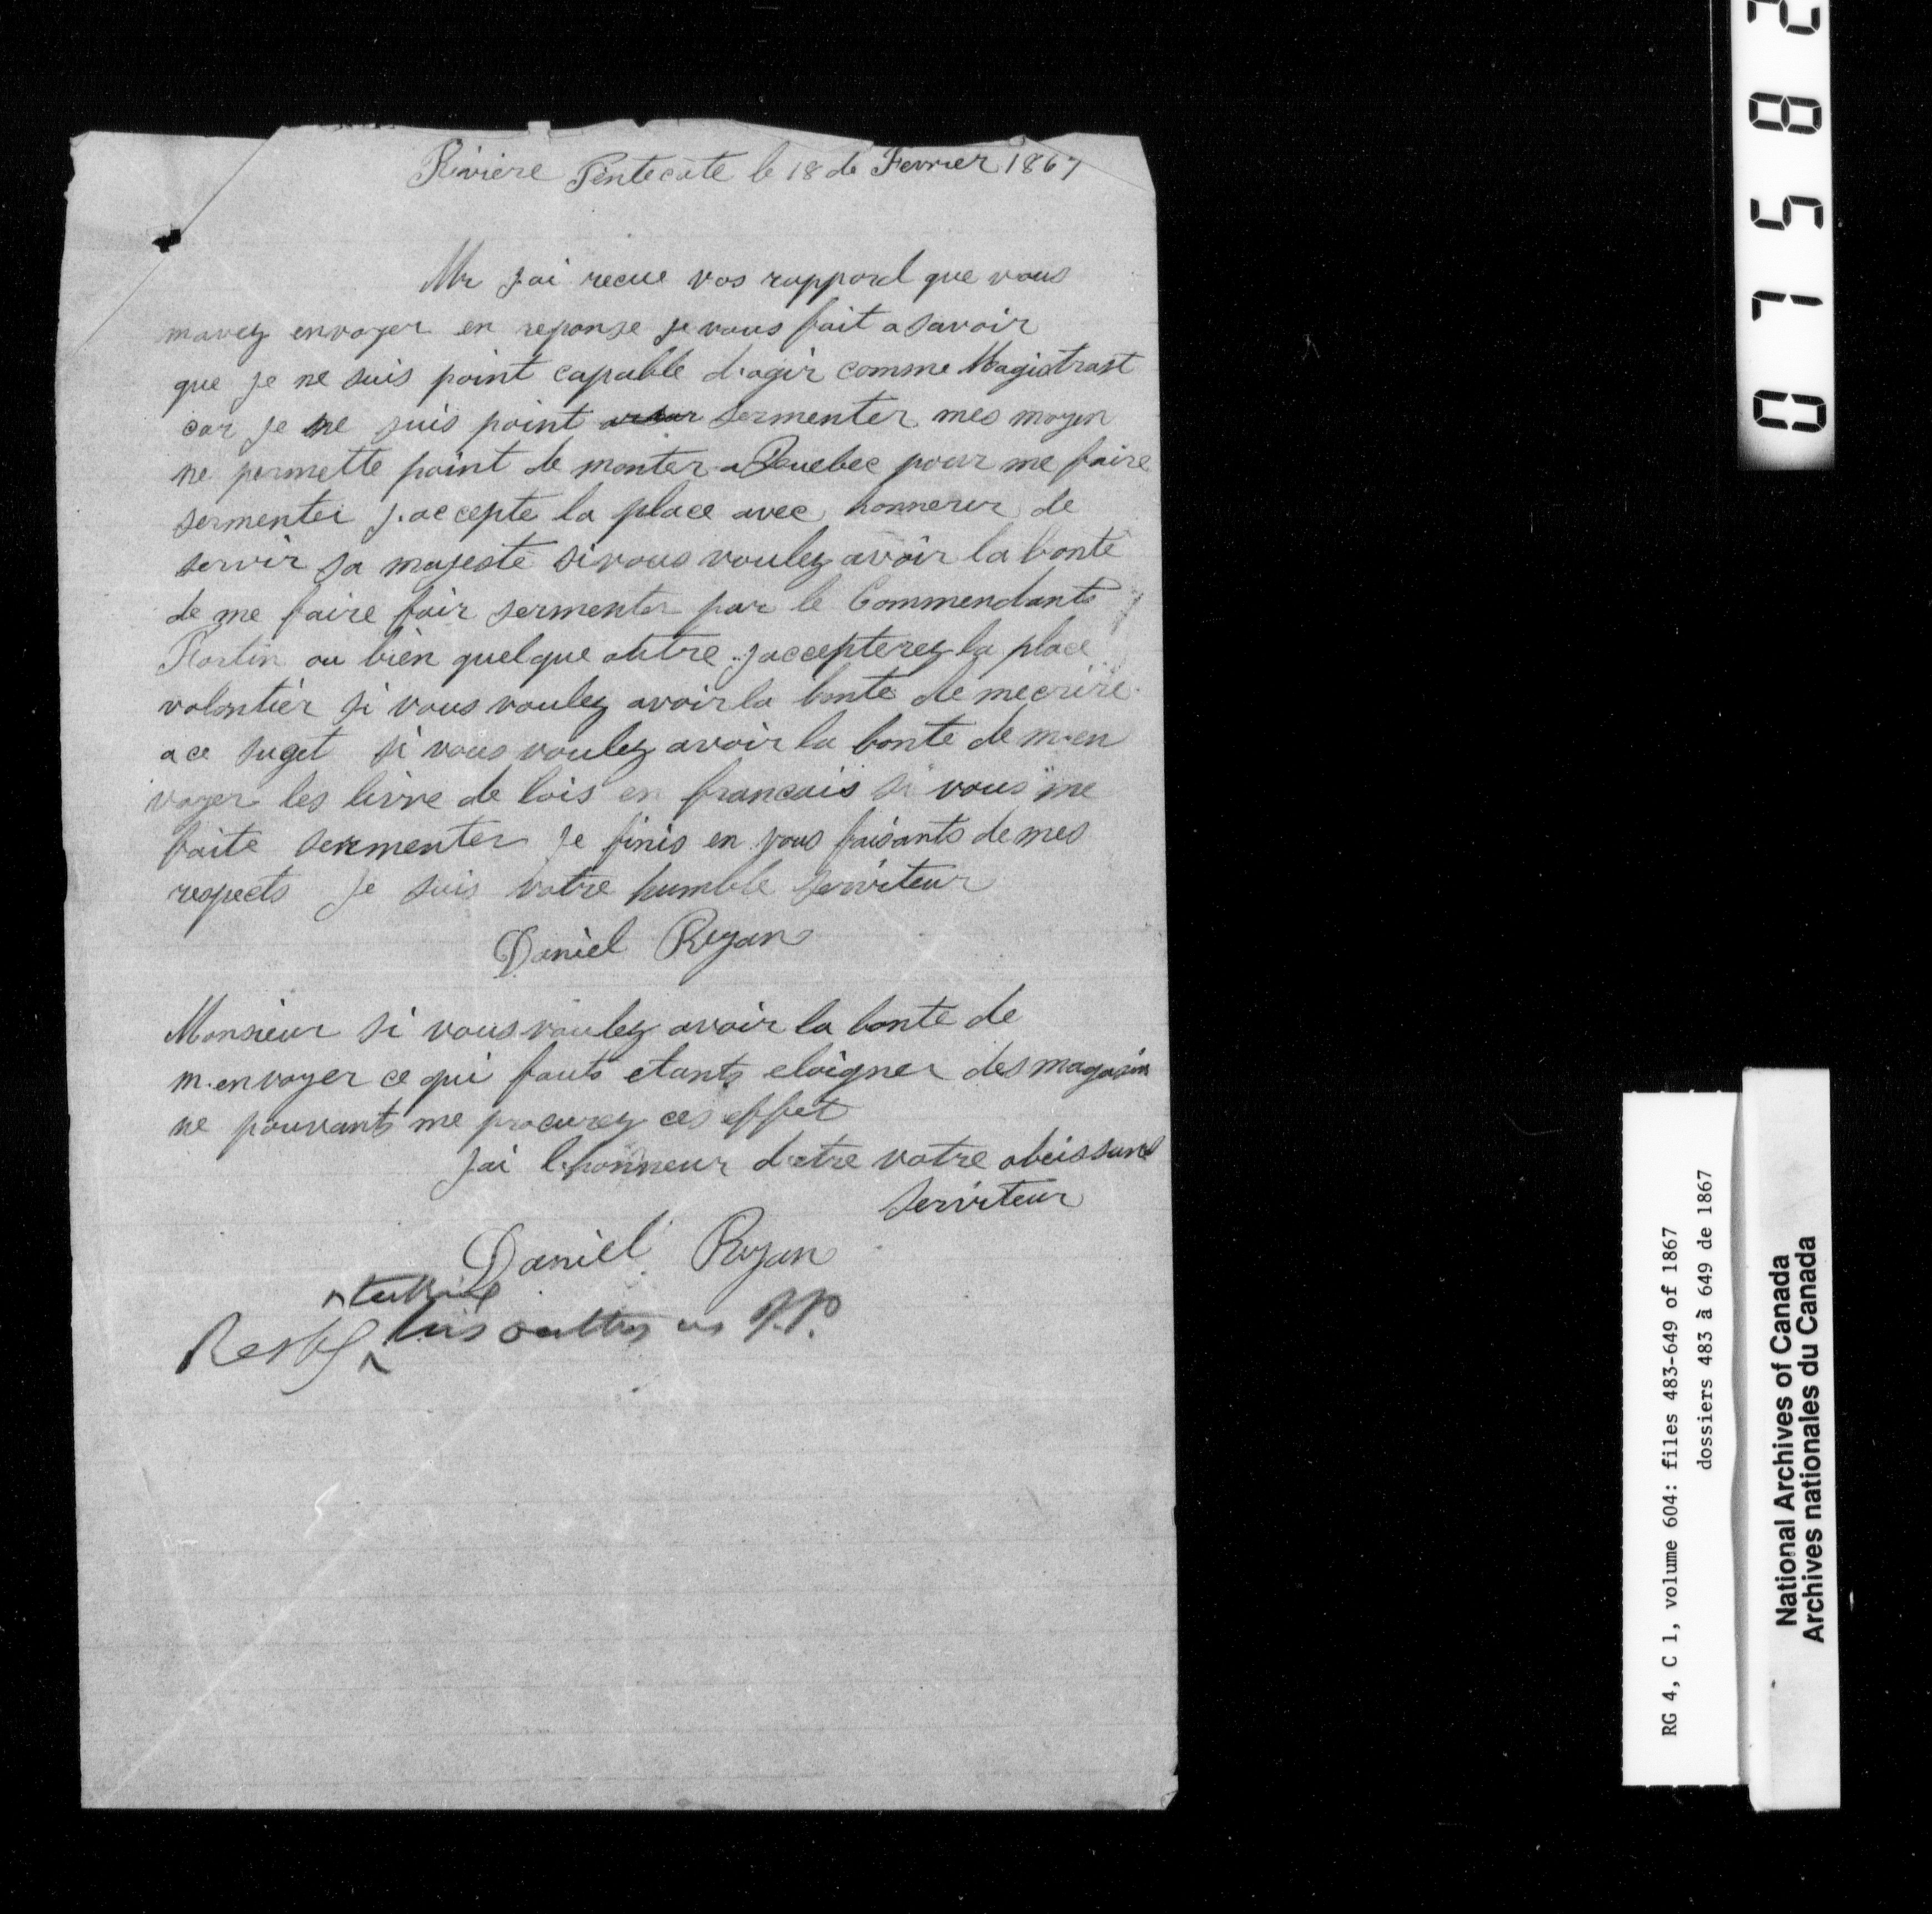 Riviere Pentecote le 18 de Fevrier 1867
Mr jai recue vos rappord que vous
mavez envoyer en reponse je vous fait a savoir
que je ne suis point capable d'agir comme Magistrast
car je ne suis point sermenter mes moyen
ne permette point de monter a Quebec pour me faire
sermenter j.accepte la place avec honnerur de
servir sa majeste si vous voulez avoir la bonte
de me faire fair sermenter par le Commendants
ou bien quelque autre jaccepterez la place
volontier si vous voulez avoir la bonte de mecrire
a ce suget si vous voulez avoir la bonte de m.en
voyer les livre de lois en francais si vous me
faite sermenter je finis en vous faisants de mes
respects je suis votre humble serviteur
Daniel Ryan
Monsieur si vous voulez avoir la bonte de
m.envoyer ce qui fauts etants eloigner des magasin
ne pouvants me procurez ces effet
jai l.honneur d.etre votre obeissand
serviteur
Daniel Ryan
his oath as J.P.
0 7 5 8 2
RG 4, C 1, volume 604: files 483-649 of 1867
dossiers 483 à 649 de 1867
National Archives of Canada
Archives nationales du Canada